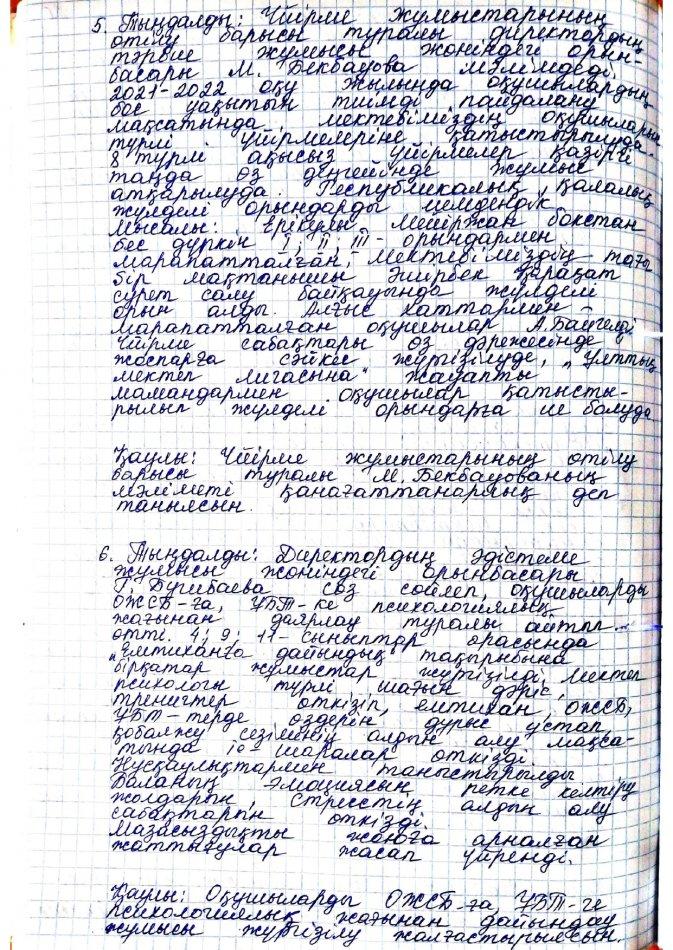 5. Тыңдалды: Үйірме жұмыстарының
өтілу барысы туралы директордың
тәрбие жұмысы жөніндегі орын-
басары М. Бекбауова мәлімдеді.
2021-2022 оқу жылында оқушылардың
бос уақытын тиімді пайдалану
мақсатында мектебіміздің оқушылары
түрлі үйірмелеріне қатыстырылуда.
8 түрлі ақысыз үйірмелер қазіргі
таңда өз деңгейінде жұмыс
атқарылуда. Республикалық, қалалық
жүлделі орындарды иемдендік
Мысалы: Ерікұлы Мейіржан бокстан
бес дүркін I, II, III - орындармен
марапатталған, Мектебіміздің тағы
бір мақтанышы Әшірбек Қарақат
сурет салу байқауында жүлделі
орын алды. Алғыс хаттармен -
марапатталған оқушылар А. Байгелді
Үйірме сабақтары өз дәрежесінде
жоспарға сәйкес жүргізілуде, „Ұлттық
мектеп лигасына" жауапты
мамандармен оқушылар қатысты-
рылып жүлделі орындарға ие болуда
Қаулы: Үйірме жұмыстарының өтілу
барысы туралы М. Бекбауованың
мәліметі қанағаттанарлық деп
танылсын.
6. Тыңдалды: Директордың әдістеме
жұмысы жөніндегі орынбасары
Г. Бугибаева сөз сөйлеп, оқушыларды
ОЖСБ-ға, ҰБТ-ке психологиялық
жағынан даярлау туралы айтып
өтті. 4; 9; 11-сыныптар арасында
„Емтиханға дайындық тақырыбына
бірқатар жұмыстар жүргізілді. Мектеп
психологы түрлі шағын дәріс,
тренингтер өткізіп, емтихан, ОЖСБ,
ҰБТ-терде өздерін дұрыс ұстап
қобалжу сезімінің алдын алу мақса-
тында 10 шаралар өткізді.
Нұсқаулықтармен таныстырылды
Баланың эмациясын ретке келтіру
жолдарын, стресстің алдын алу
сабақтарын өткізді.
Мазасыздықты жоюға арналған
жаттығулар жасап үйренді.
Қаулы: Оқушыларды ОЖСБ-ға, ҰБТ-ге
психологиялық жағынан дайындау
жұмысы жүргізілу жалғастырылсын.